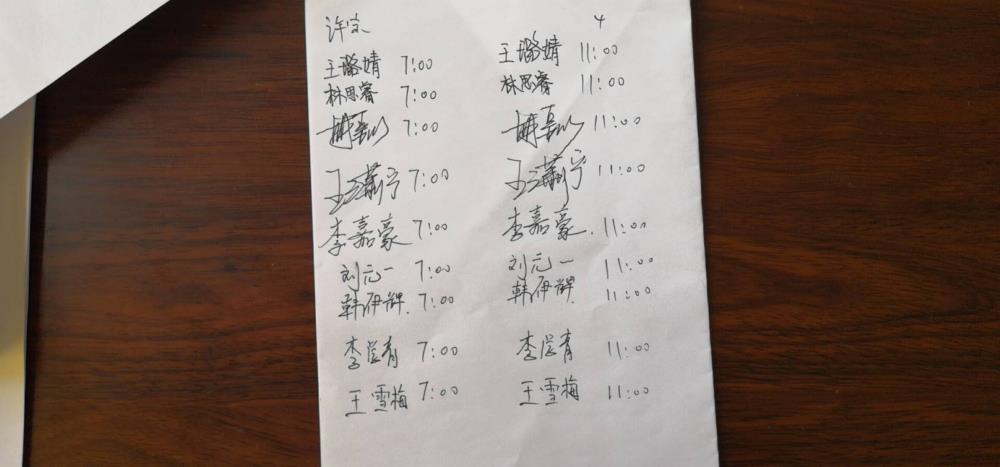 许宗 4
王璐婧 7:00 王璐婧 11:00
林思睿 7:00 林思睿 11:00
7:00 11:00
王潇宁 7:00 王潇宁 11:00
李嘉豪 7:00 李嘉豪. 11:00
刘元一 7:00 刘元一 11:00
韩伊辉. 7:00 韩伊辉. 11:00
李学青 7:00 李学青 11:00
王雪梅 7:00 王雪梅 11:00